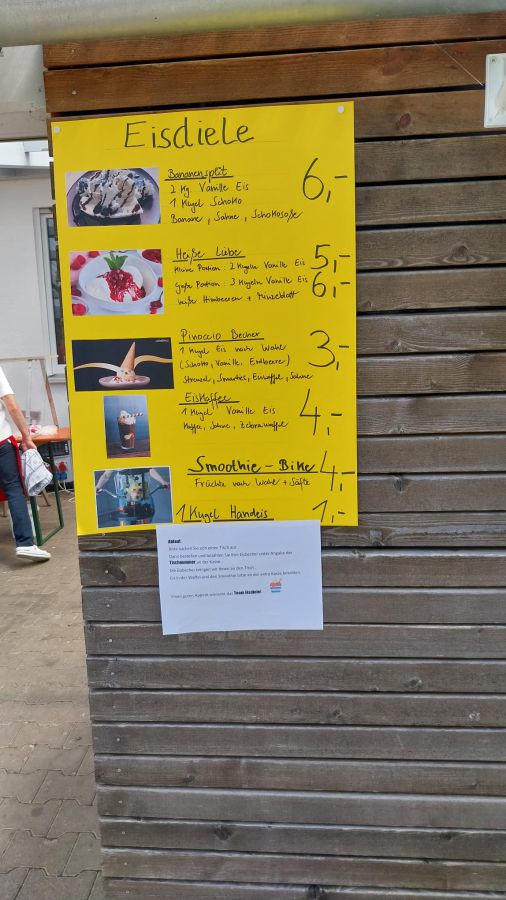 Eisdiele
Bananensplit
2 Kg. Vanille Eis
1 Kugel Schoko
Banane, Sahne, Schokosoße
6,-
Heiße Liebe
Kleine Portion: 2 Kugeln Vanille Eis 5,-
Große Portion: 3 Kugeln Vanille Eis 6,-
heiße Himbeeren + Minzeblatt
Pinoccio Becher
1 Kugel Eis nach Wahl
(Schoko, Vanille, Erdbeere)
Streusel, Smarties, Eiswaffel, Sahne
3,-
Eiskaffee
1 Kugel Vanille Eis
Kaffee, Sahne, Zebrawaffel
4,-
Smoothie-Bike 4,-
Früchte nach Wahl + Säfte
1 Kugel Handeis 1,-
Ablauf:
Bitte suchen Sie sich einen Tisch aus.
Dann bestellen und bezahlen Sie Ihre Eisbecher unter Angabe der
Tischnummer an der Kasse.
Die Eisbecher bringen wir Ihnen an den Tisch.
Eis in der Waffel und den Smoothie bitte an der extra Kasse bestellen.
Einen guten Appetit wünscht das Team Eisdiele!